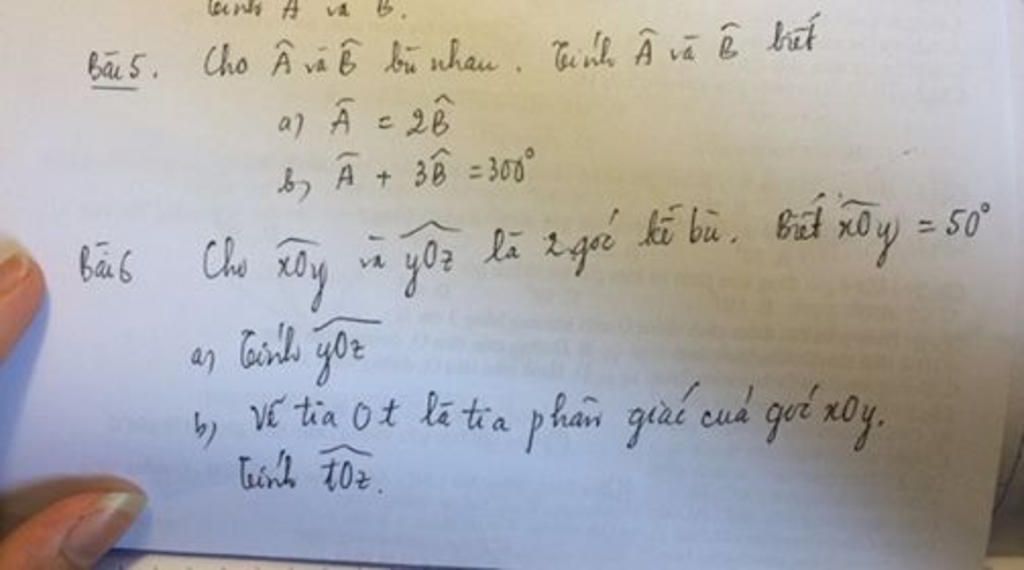 Tính Â và B̂.
Bài 5. Cho Â và B̂ bù nhau. Tính Â và B̂ biết
a) Â = 2B̂
b) Â + 3B̂ = 300°
Bài 6 Cho xOy và yOz là 2 góc kề bù. Biết xOy = 50°
a) Tính yOz
b) Vẽ tia Ot là tia phân giác của góc xOy.
Tính tOz.